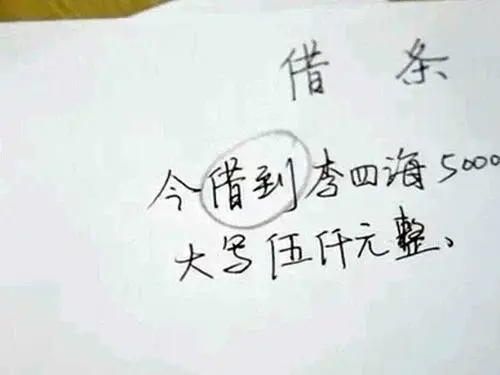 借条
今借到李四海5000
大写伍仟元整。